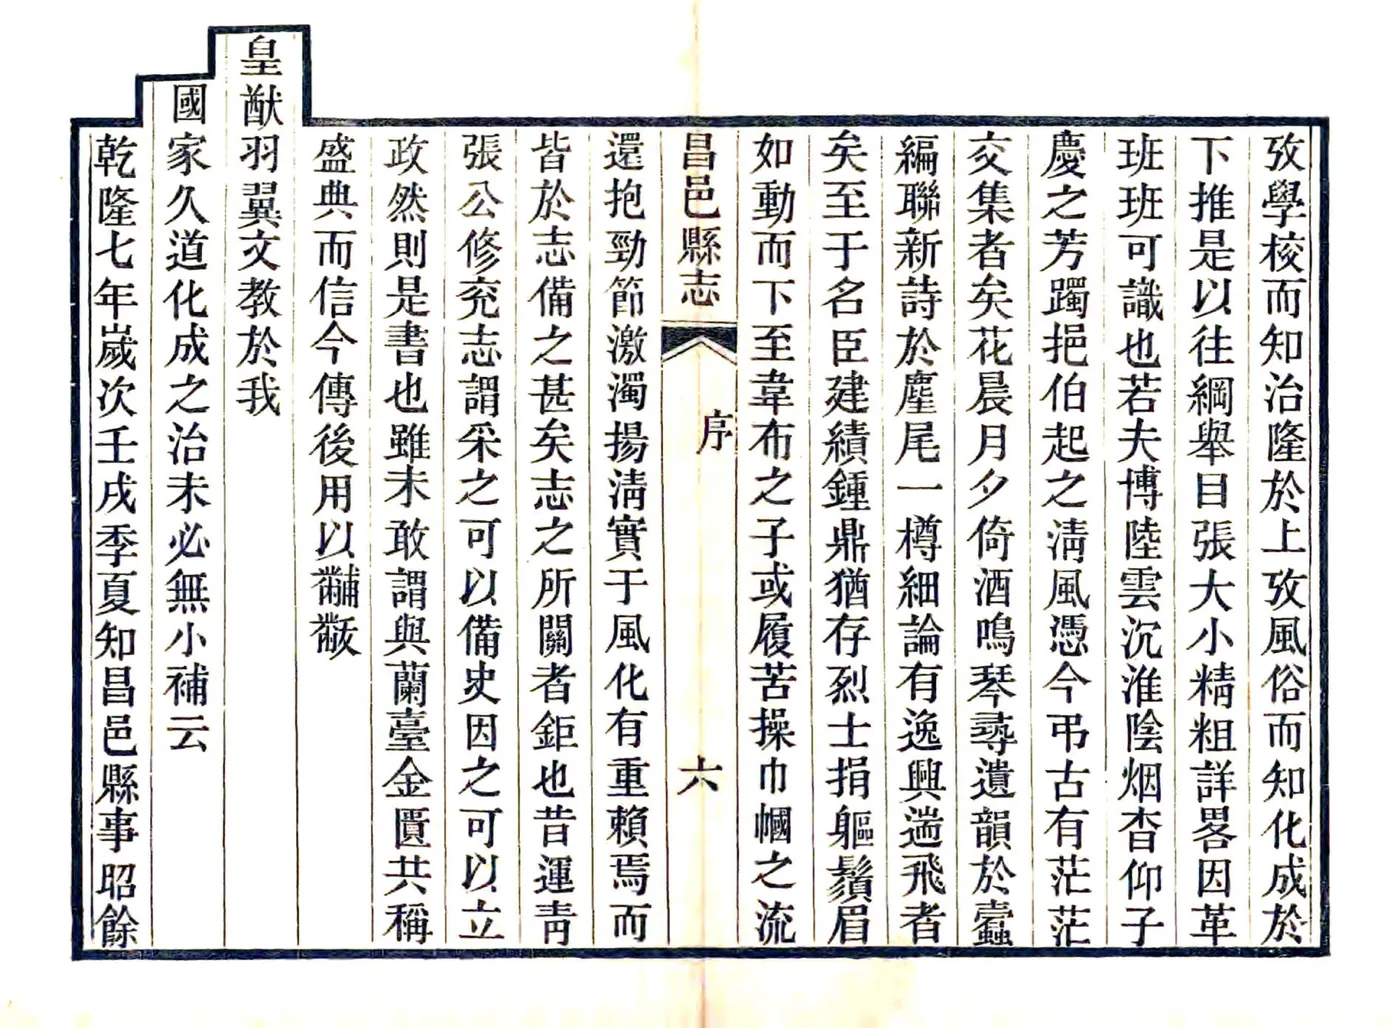 攷學校而知治隆於上攷風俗而知化成於
下推是以往綱舉目張大小精粗詳畧因革
班班可識也若夫博陸雲沉淮陰烟杳仰子
慶之芳躅挹伯起之淸風憑今弔古有茫茫
交集者矣花晨月夕倚酒鳴琴尋遺韻於蠹
編聯新詩於麈尾一樽細論有逸興遄飛者
矣至于名臣建績鍾鼎猶存烈士捐軀鬚眉
如動而下至韋布之子或履苦操巾幗之流
昌邑縣志
序
六
還抱勁節激濁揚淸實于風化有重賴焉而
皆於志備之甚矣志之所關者鉅也昔運青
張公修兖志謂采之可以備史因之可以立
政然則是書也雖未敢謂與蘭臺金匱共稱
盛典而信今傳後用以黼黻
皇猷羽翼文教於我
國家久道化成之治未必無小補云
乾隆七年嵗次壬戌季夏知昌邑縣事昭餘